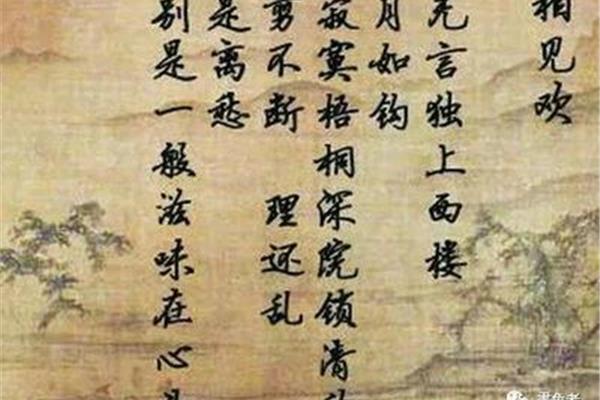 相见欢
无言独上西楼
月如钩
寂寞梧桐深院锁清
剪不断 理还乱
是离愁
别是一般滋味在心